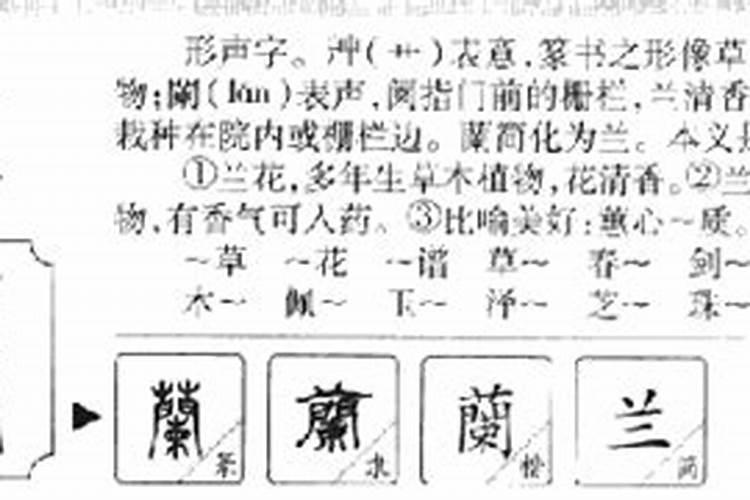 形声字。艸(艹)表意,篆书之形像草
物;闌(lán)表声,阑指门前的栅栏,兰清香
栽种在院内或栅栏边。蘭简化为兰。本义是
①兰花,多年生草本植物,花清香。②兰
物,有香气可入药。③比喻美好:蕙心~质。
~草 ~花 ~谱 草~ 春~ 剑~
木~ 佩~ 玉~ 泽~ 芝~ 珠~
蘭 篆 蘭 隶 蘭 楷 兰 简